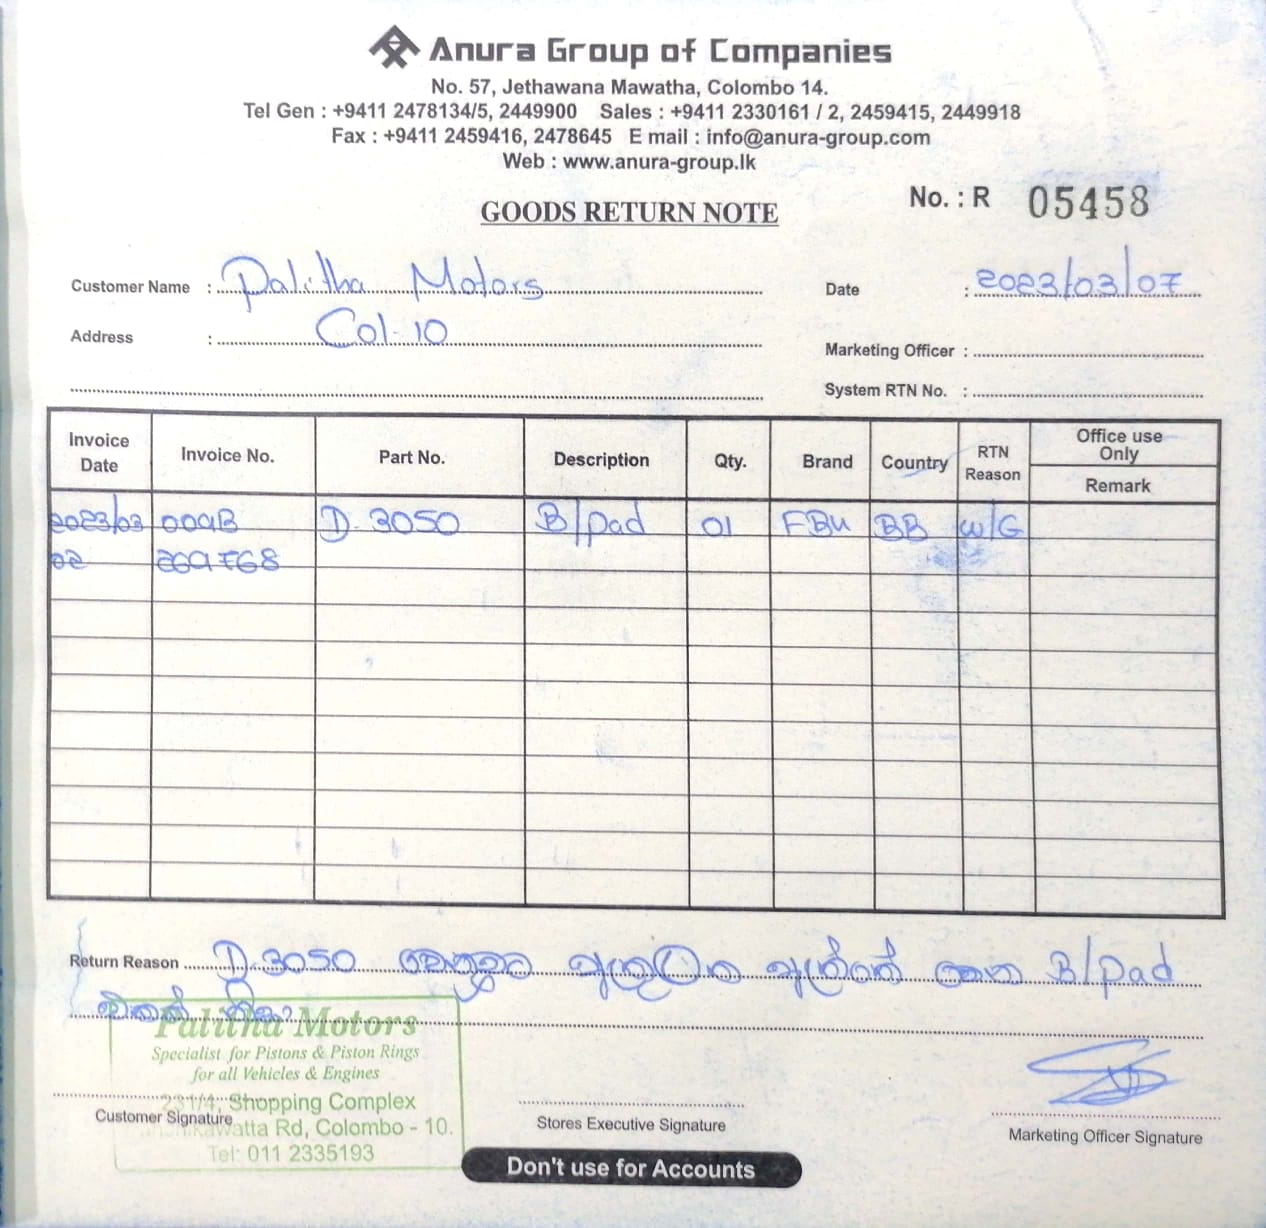 Anura Group of Companies
No. 57, Jethawana Mawatha, Colombo 14.
Tel Gen : +9411 2478134/5, 2449900 Sales : +9411 2330161 / 2, 2459415, 2449918
Fax : +9411 2459416, 2478645 E mail : info@anura-group.com
Web : www.anura-group.lk
GOODS RETURN NOTE
No. : R 05458
Customer Name : Palitha Motors
Date : 2023/03/07
Address : Col-10
Marketing Officer :
System RTN No. :
Invoice Date Invoice No. Part No. Description Qty. Brand Country RTN Reason Office use Only Remark
2023/03 009B D 3050 B/pad 01 FBU BB W/G
02 269768
Return Reason D.3050 B/pad
Palitha Motors
Specialist for Pistons & Piston Rings
for all Vehicles & Engines
231/4, Shopping Complex
Customer Signature
Stores Executive Signature
Marketing Officer Signature
Rd, Colombo - 10.
Tel: 011 2335193
Don't use for Accounts